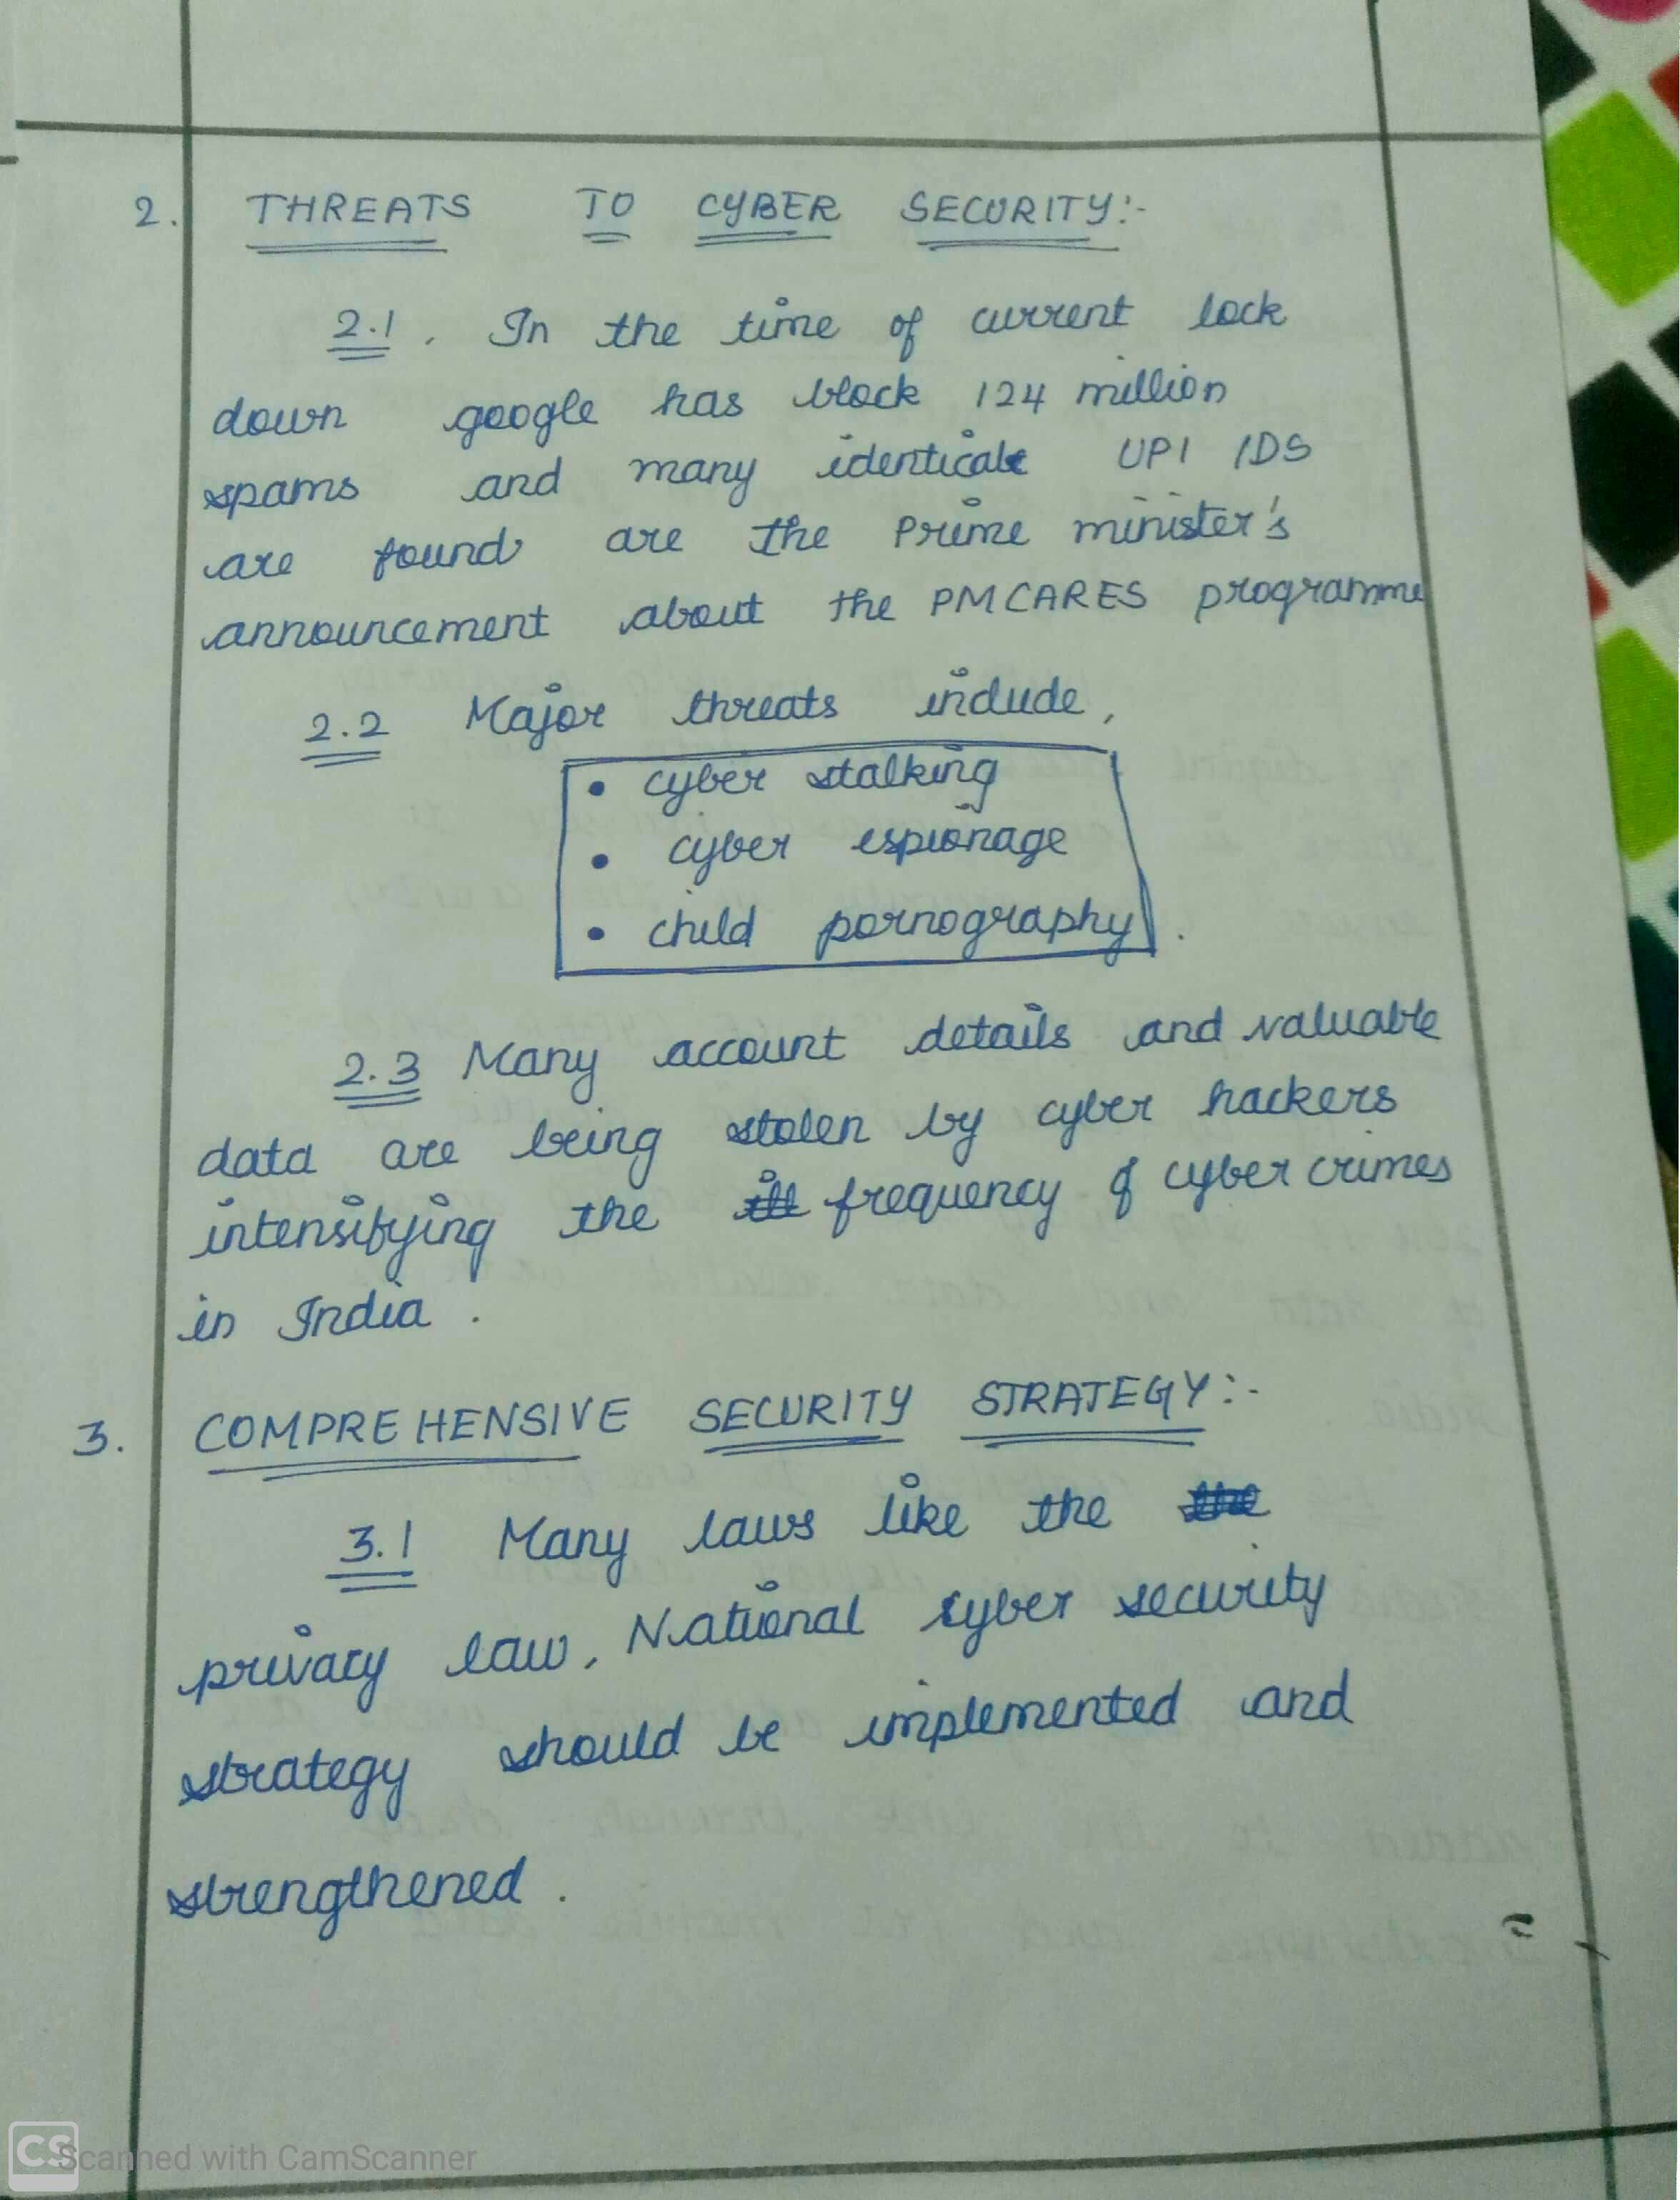 2. THREATS TO CYBER SECURITY:-
2.1. In the time of current lock
down google has block 124 million
spams and many identical UPI IDS
are found are the Prime minister's
announcement about the PMCARES programme
2.2 Major threats include,
• cyber stalking
• cyber espionage
• child pornography.
2.3 Many account details and valuable
data are being stolen by cyber hackers
intensifying the frequency of cyber crimes
in India.
3. COMPREHENSIVE SECURITY STRATEGY:-
3.1 Many laws like the
privacy law, National cyber security
strategy should be implemented and
strengthened.
CS Scanned with CamScanner